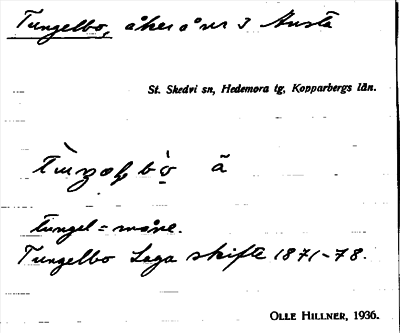 Tungelbo, åker å nr 3 Austa
St. Skedvi sn, Hedemora tg, Kopparbergs län.
ã
tungel = måne.
Tungelbo Laga skifte 1871-78.
OLLE HILLNER, 1936.